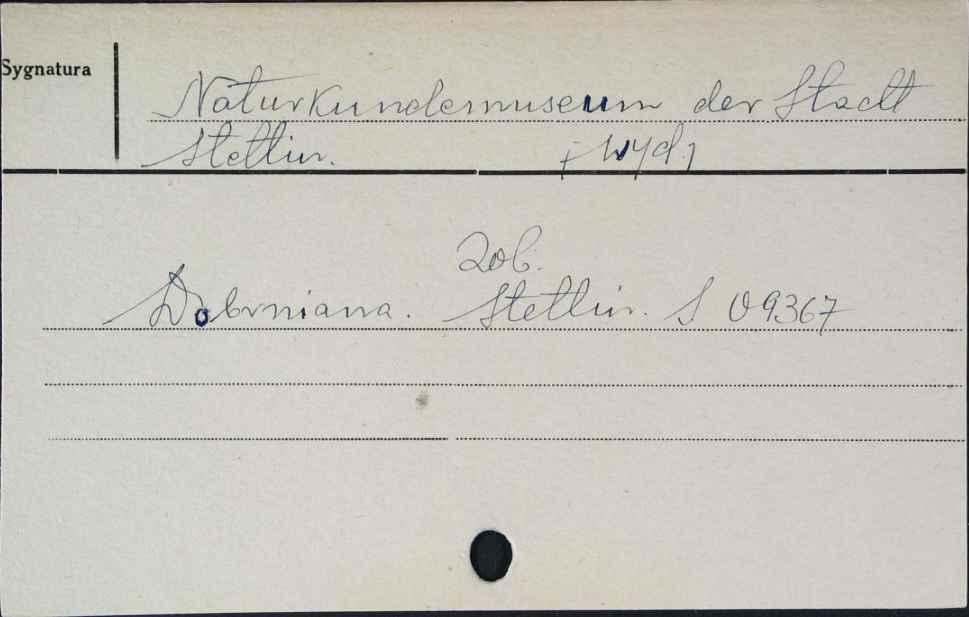 Sygnatura
Naturkundemuseum der Stadt
Stettin. [wyd.]
Zob.
Dobrniana. Stettin. S 09367